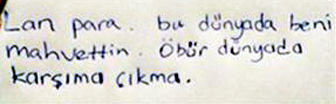 Lan para. bu dünyada beni
mahvettin. Öbür dünyada
karşıma çıkma.